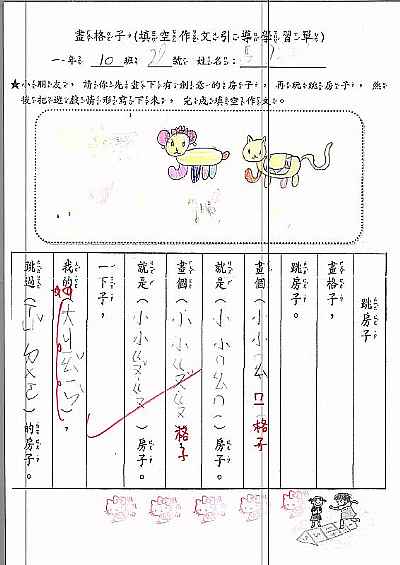 畫格子(填空作文引導學習單)
一年 10 班 號 姓名：
★小朋友，請你先畫下有創意的房子，再玩跳房子，然
後把遊戲情形寫下來，完成填空作文。
跳房子
畫格子，
跳房子。
畫個(小小ㄇㄠ口)格子
就是(小小ㄇㄠㄇ)房子。
畫個(小小ㄍㄡˇㄍㄡ)格子
就是(小小ㄍㄡˇㄍㄡ)房子。
一下子，
我的(大
跳過( )的房子。